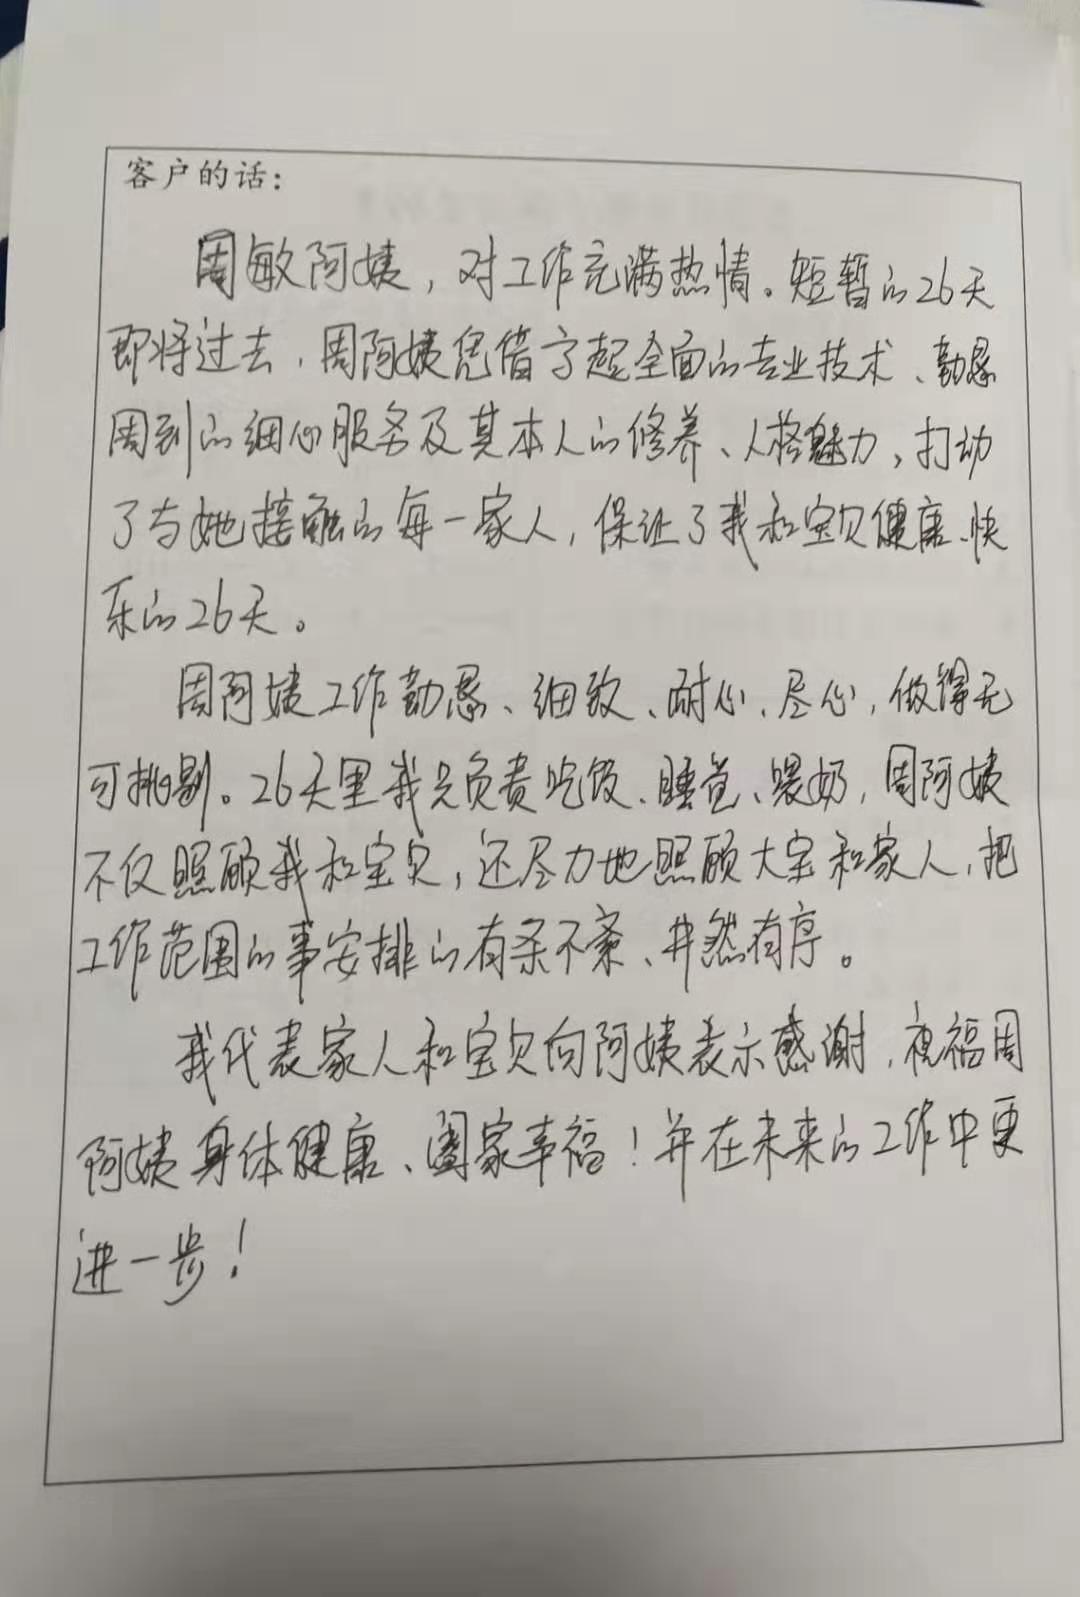 客户的话：
周敏阿姨，对工作充满热情。短暂的26天
即将过去，周阿姨凭借了起全面的专业技术、勤恳
周到的细心服务及其本人的修养、人格魅力，打动
了与她接触的每一家人，保证了我和宝贝健康、快
乐的26天。
周阿姨工作勤恳、细致、耐心、尽心，做得无
可挑剔。26天里我只负责吃饭、睡觉、喂奶，周阿姨
不仅照顾我和宝贝，还尽力地照顾大宝和家人，把
工作范围的事安排的有条不紊、井然有序。
我代表家人和宝贝向阿姨表示感谢，祝福周
阿姨身体健康、阖家幸福！并在未来的工作中更
进一步！